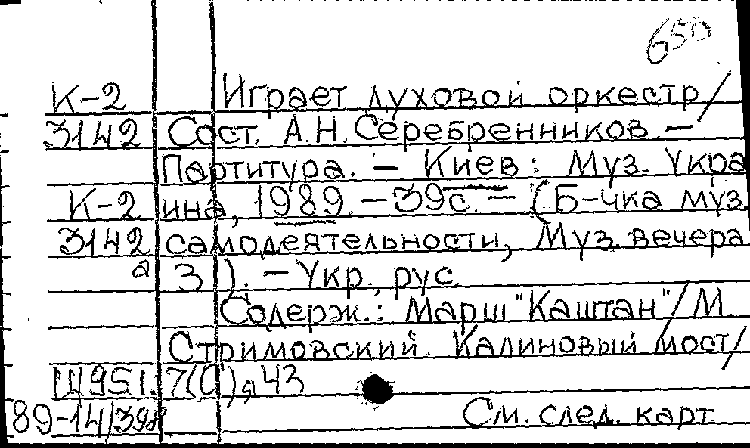 650
К-2 Играет духовой оркестр/
3142 Сост. А.Н. Серебренников. –
Партитура. – Киев: Муз. Укра
К-2 ина, 1989. – 39с. – (Б-чка муз.
3142 самодеятельности, Муз. вечера
а 3). – Укр., рус.
Содерж.: Марш "Каштан"/М.
Стримовский. Калиновый мост/
Щ951.7(0)я43
89-14/39
См. след. карт